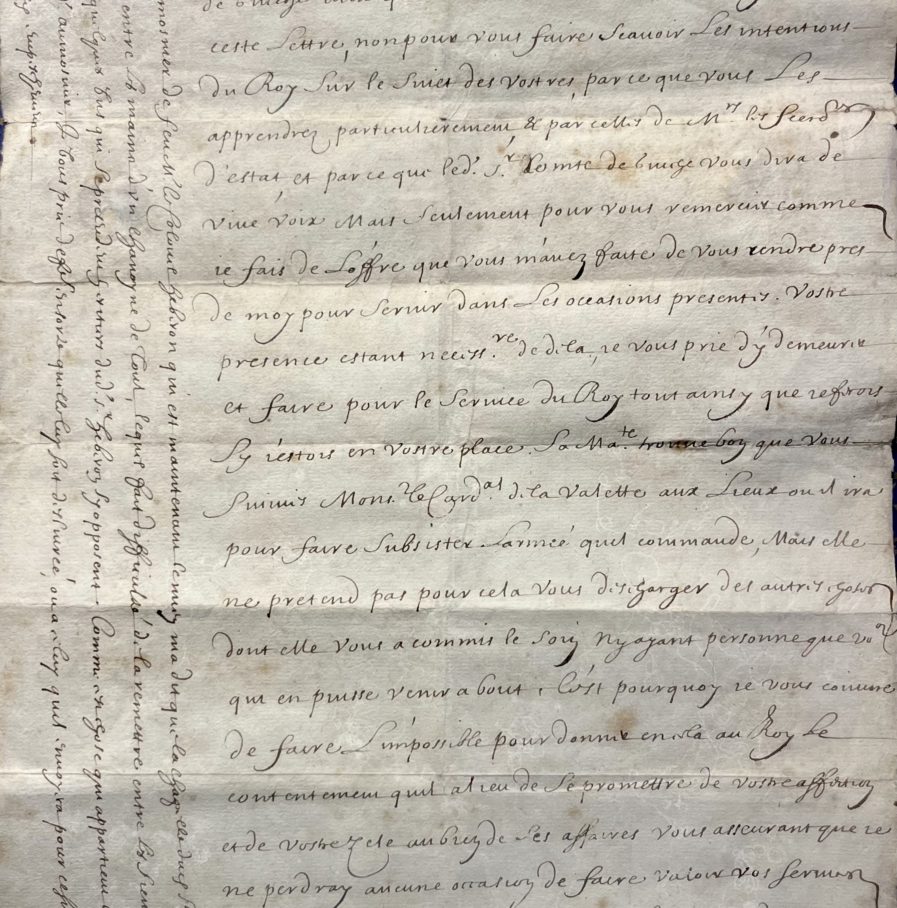 ceste Lettre, non pour vous faire scavoir Les intentions
du Roy sur le suiet des vostres, parce que vous Les
apprendrez particulierement & par celles de Mrs les secrdres
d'estat, et par ce que led. Sr Comte de Guiche vous dira de
vive voix Mais seulement pour vous remercier comme
ie fais de L'offre que vous m'avez faite de vous rendre pres
de moy pour servir dans Les occasions presentes. Vostre
presence estant necessre de dela, ie vous prie d'y demeurer
et faire pour le service du Roy tout ainsy que ie ferois
sy i'estois en vostre place. Sa Mate trouve bon que vous
suiviez Monsr le Cardal de la valette aux Lieux ou il ira
pour faire subsister L'armeé quil commande, Mais elle
ne pretend pas pour cela vous descharger des autres choses
dont elle vous a commis le soin n'y ayant personne que vous
qui en puisse venir a bout, C'est pourquoy ie vous coniure
de faire L'impossible pour donner en cela au Roy Le
contentement quil a lieu de se promettre de vostre affection
et de vostre zele au bien de ses affaires vous asseurant que ie
ne perdray aucune occasion de faire valoir vos services
mosnier de feu Mr le Colonel hebron qui est maintenant le mien ma dit que la chapelle dud. Sr
entre les mains d'un chanoyne de Toul, lequel fait difficulté de la remettre entre les siennes
quelques uns qui se pretendent heritiers dud. Sr hebron sy opposent. Comme chose qui appartient a
l'aumosnier, Je vous prie de faire en sorte quelle luy soit delivreé, ou a celuy quil envoyera pour cest